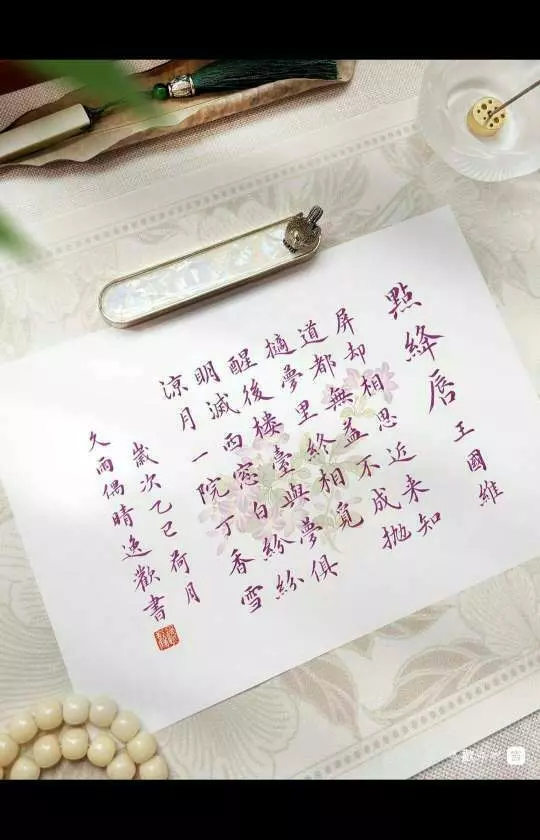 點絳唇
王國維
屏却相思近来知
道都無益不成抛
擿夢里終相覓
醒後楼臺與夢俱
明滅西窓白紛紛
涼月一院丁香雪
歲次乙巳荷月
久雨偶晴逸歡書